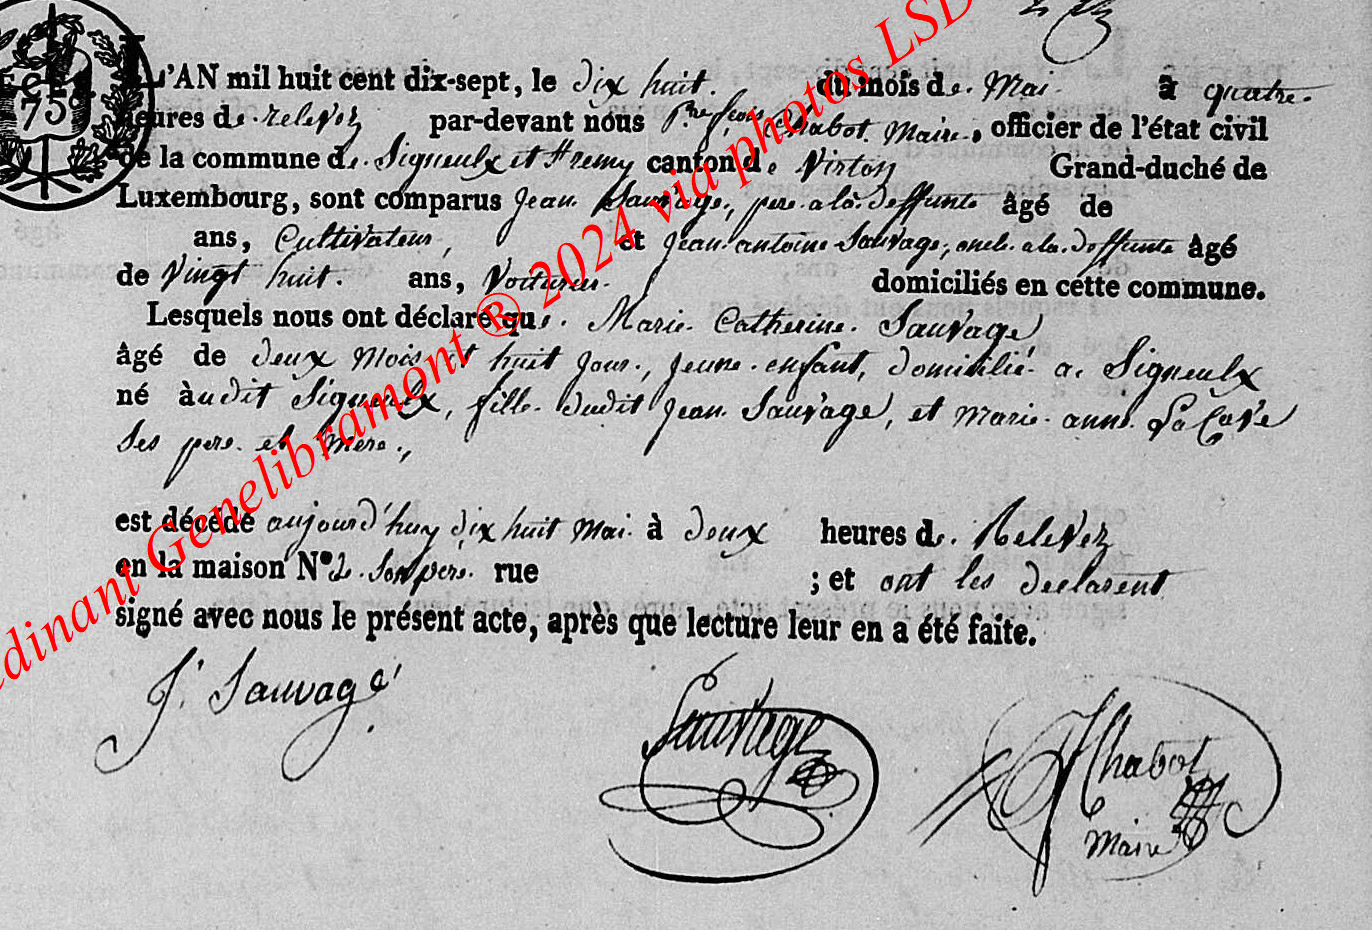 75
L'AN mil huit cent dix-sept, le dix huit. du mois de. Mai. à quatre.
heures de. relevez par-devant nous Pre fçois Chabot Maire, officier de l'état civil
de la commune de. Signeulx et St remy canton de Virton Grand-duché de
Luxembourg, sont comparus Jean Sauvage, pere. a la deffunte âgé de
ans, Cultivateur, et Jean antoine Sauvage, oncle. a la. deffunte âgé
de Vingt huit. ans, Voiturier. domiciliés en cette commune.
Lesquels nous ont déclaré que. Marie. Catherine. Sauvage
âgé de deux Mois et huit Jour, Jeune. enfant, domicilié a. Signeulx
né àudit Signeulx, fille. dudit Jean Sauvage, et Marie. anne. LaCave
Ses pere. et Mere.,
est décédé aujourd'huy dix huit Mai. à deux heures de. Relevez
en la maison N° de. Son pere. rue ; et ont les declarent
signé avec nous le présent acte, après que lecture leur en a été faite.
J. Sauvage Sauvage Chabot
Maire
dinant Genelibramont ® 2024 via photos LSD